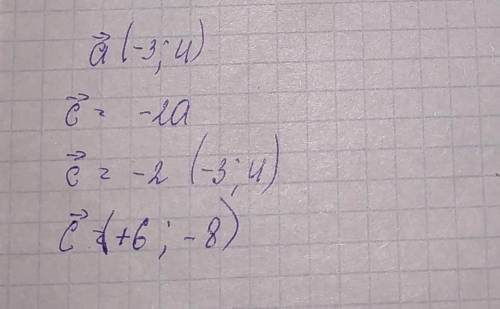 a⃗ (-3; 4)
c⃗ = -2a
c⃗ = -2 (-3; 4)
c⃗ = (+6; -8)